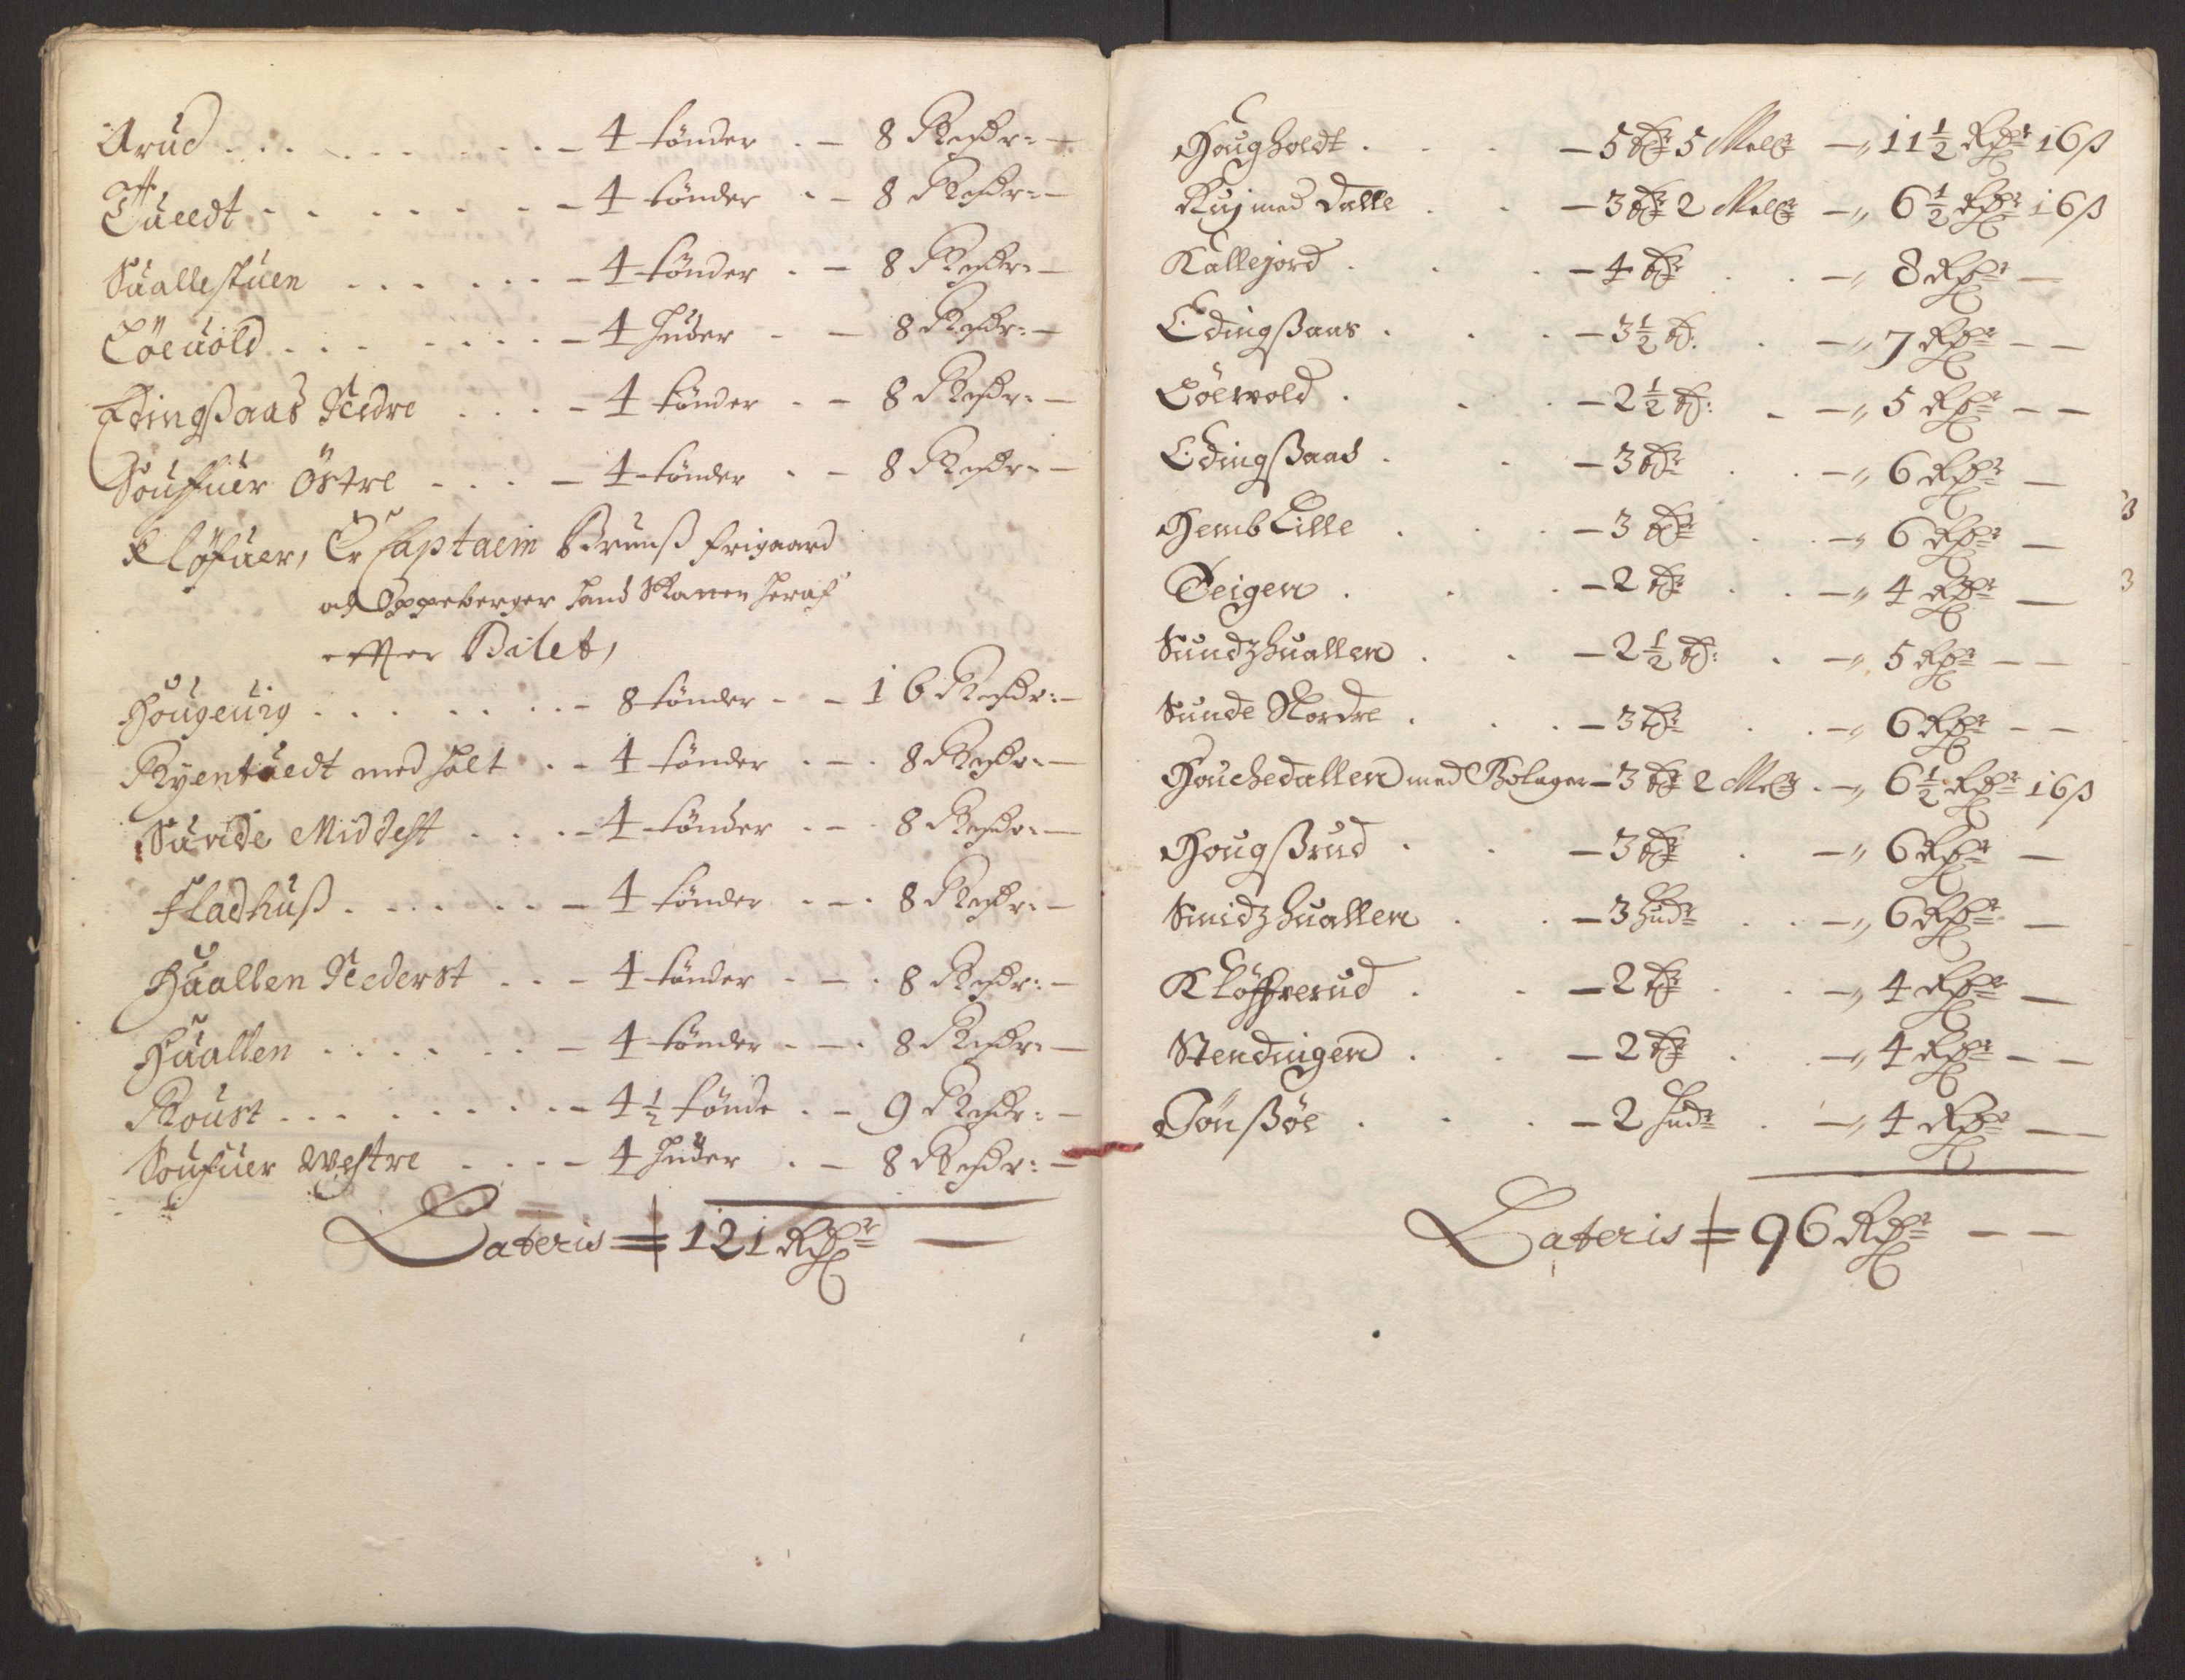 Arud . . . . . . . . . – 4 tønder . – 8 Rixdr: –
Tueedt . . . . . . . – 4 tønder . – 8 Rixdr: –
Suallestuen . . . . . . – 4 tønder . – 8 Rixdr: –
Löeuold . . . . . . . – 4 huder . – 8 Rixdr: –
Edingßaas Nedre . . . – 4 tønder . – 8 Rixdr: –
Souffuer Östre . . . – 4 tønder . – 8 Rixdr: –
Kløfuer, Er Captaein Brunß frigaard
og Oppeberger hand Skatten heraf
effter Bilet,
Hougeuig . . . . . . . – 8 tønder . – 16 Rixdr: –
Ryentuedt med holt . . – 4 tønder . – 8 Rixdr: –
Sunde Middest . . . – 4 tønder . – 8 Rixdr: –
Fladhuß . . . . . . – 4 tønder . – 8 Rixdr: –
Huallen Nederst . . – 4 tønder . – 8 Rixdr: –
Huallen . . . . . . – 4 tønder . – 8 Rixdr: –
Roust . . . . . . . . – 4 1/2 tønde . – 9 Rixdr: –
Soufuer westre . . . – 4 huder . – 8 Rixdr: –
Lateris = 121 Rdr –
Hougholdt . . . – 5 tdr 5 Melr – „ 11 1/2 Rdr 16 ß
Ruj med Dalle . . – 3 tdr 2 Melr – „ 6 1/2 Rdr 16 ß
Kallejord . . . – 4 tdr . . – „ 8 Rdr –
Edingßaas . . . – 3 1/2 td: . – „ 7 Rdr – –
Löewold . . . – 2 1/2 td: . – „ 5 Rdr – –
Edingßaas . . – 3 tdr . . – „ 6 Rdr –
Hemb Lille . . . – 3 tdr . . – „ 6 Rdr –
Teigen . . . – 2 tdr . . – „ 4 Rdr –
Sundzhuallen . . – 2 1/2 td: . – „ 5 Rdr – –
Sunde Nordre . . . – 3 tdr . . – „ 6 Rdr – –
Houchedallen med Bolager – 3 tdr 2 Melr . – „ 6 1/2 Rdr 16 ß
Hougßrud . . – 3 tdr . – „ 6 Rdr –
Smidzhuallen . . – 3 hudr . . – „ 6 Rdr –
Kløffrerud . . – 2 tdr . . – „ 4 Rdr –
Stendingen . . – 2 tdr . . – „ 4 Rdr – –
Tönßöe . . . – 2 hudr . – „ 4 Rdr –
Lateris = 96 Rdr – –